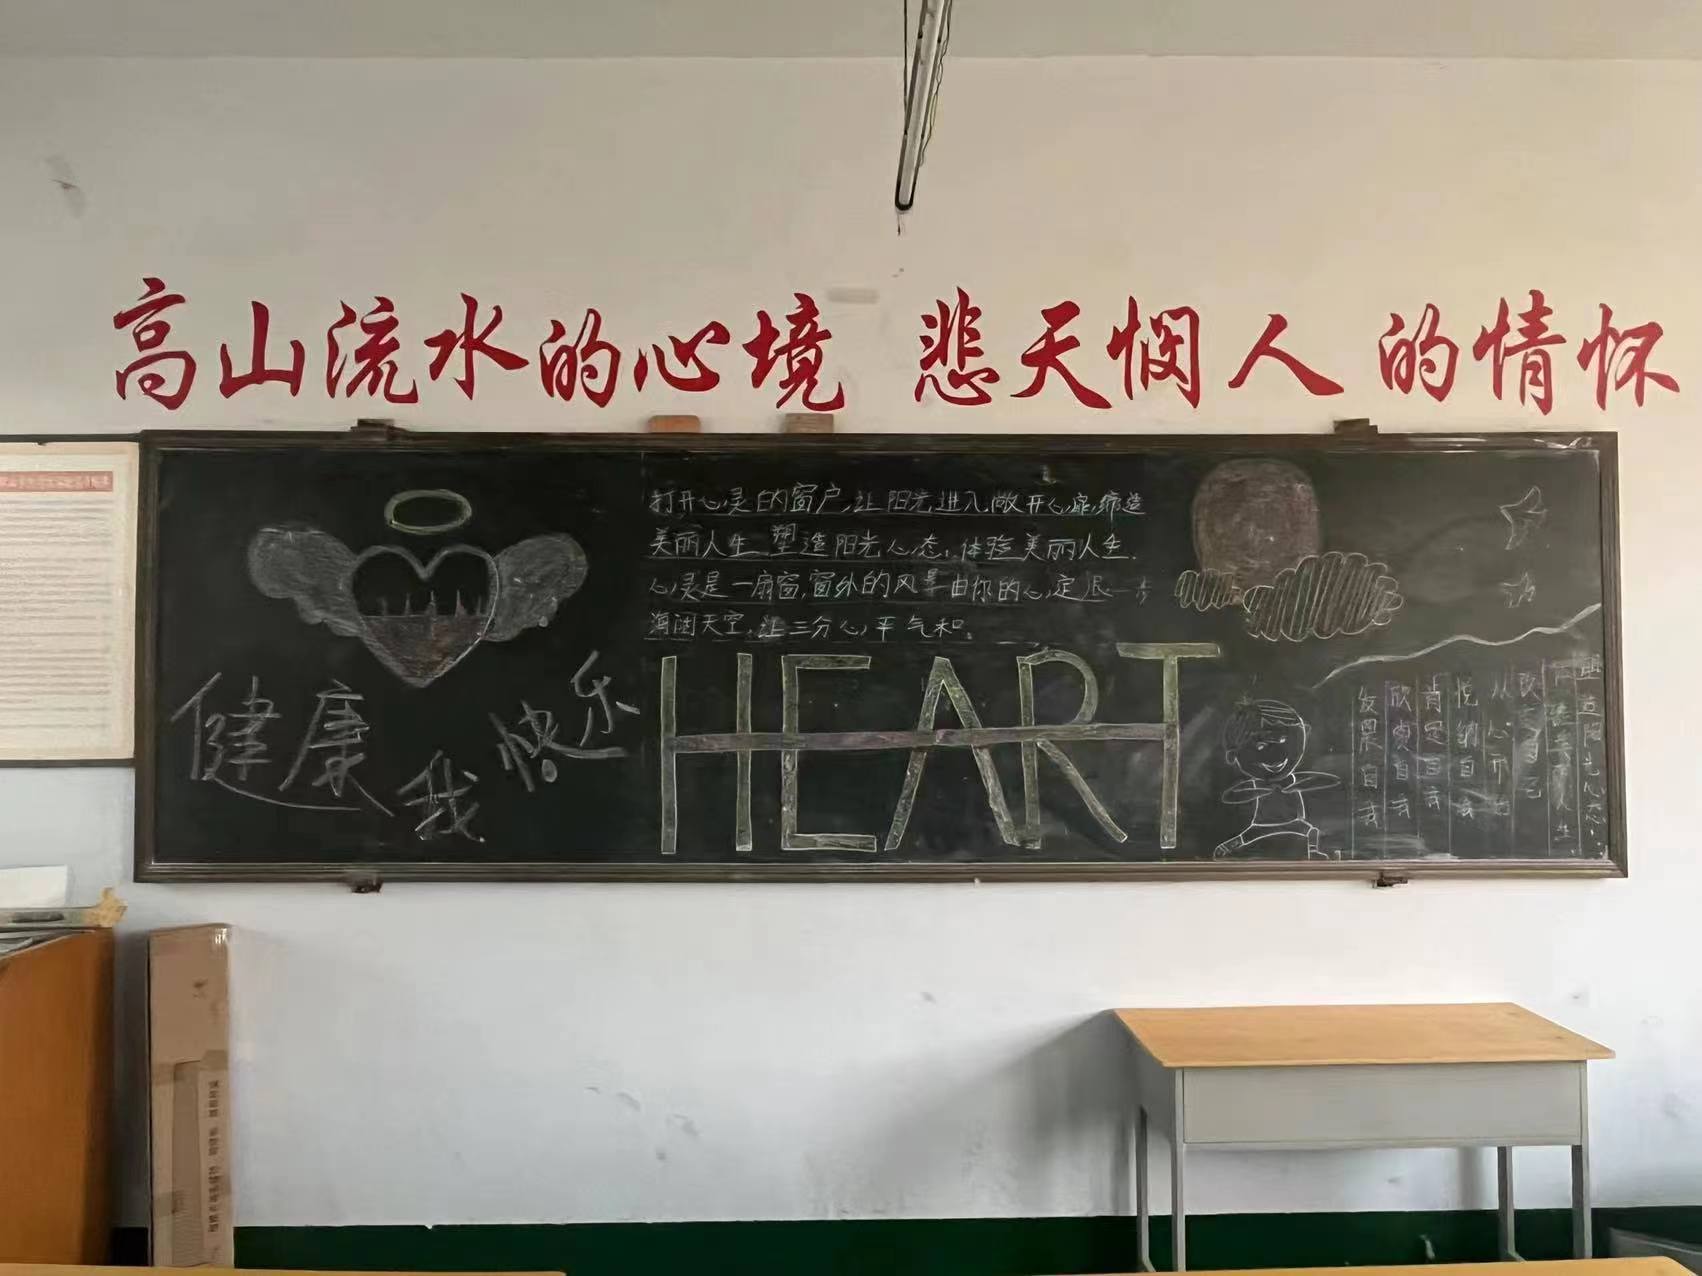 高山流水的心境 悲天悯人的情怀
打开心灵的窗户,让阳光进入,敞开心扉,缔造
美丽人生,塑造阳光心态,体验美丽人生.
心灵是一扇窗,窗外的风景由你的心定.退一步
海阔天空,让三分心平气和。
健康 我 快乐
HEART
塑造阳光心态,
美丽人生
改变自己
从心开始
悦纳自我
肯定自我
欣赏自我
发展自我